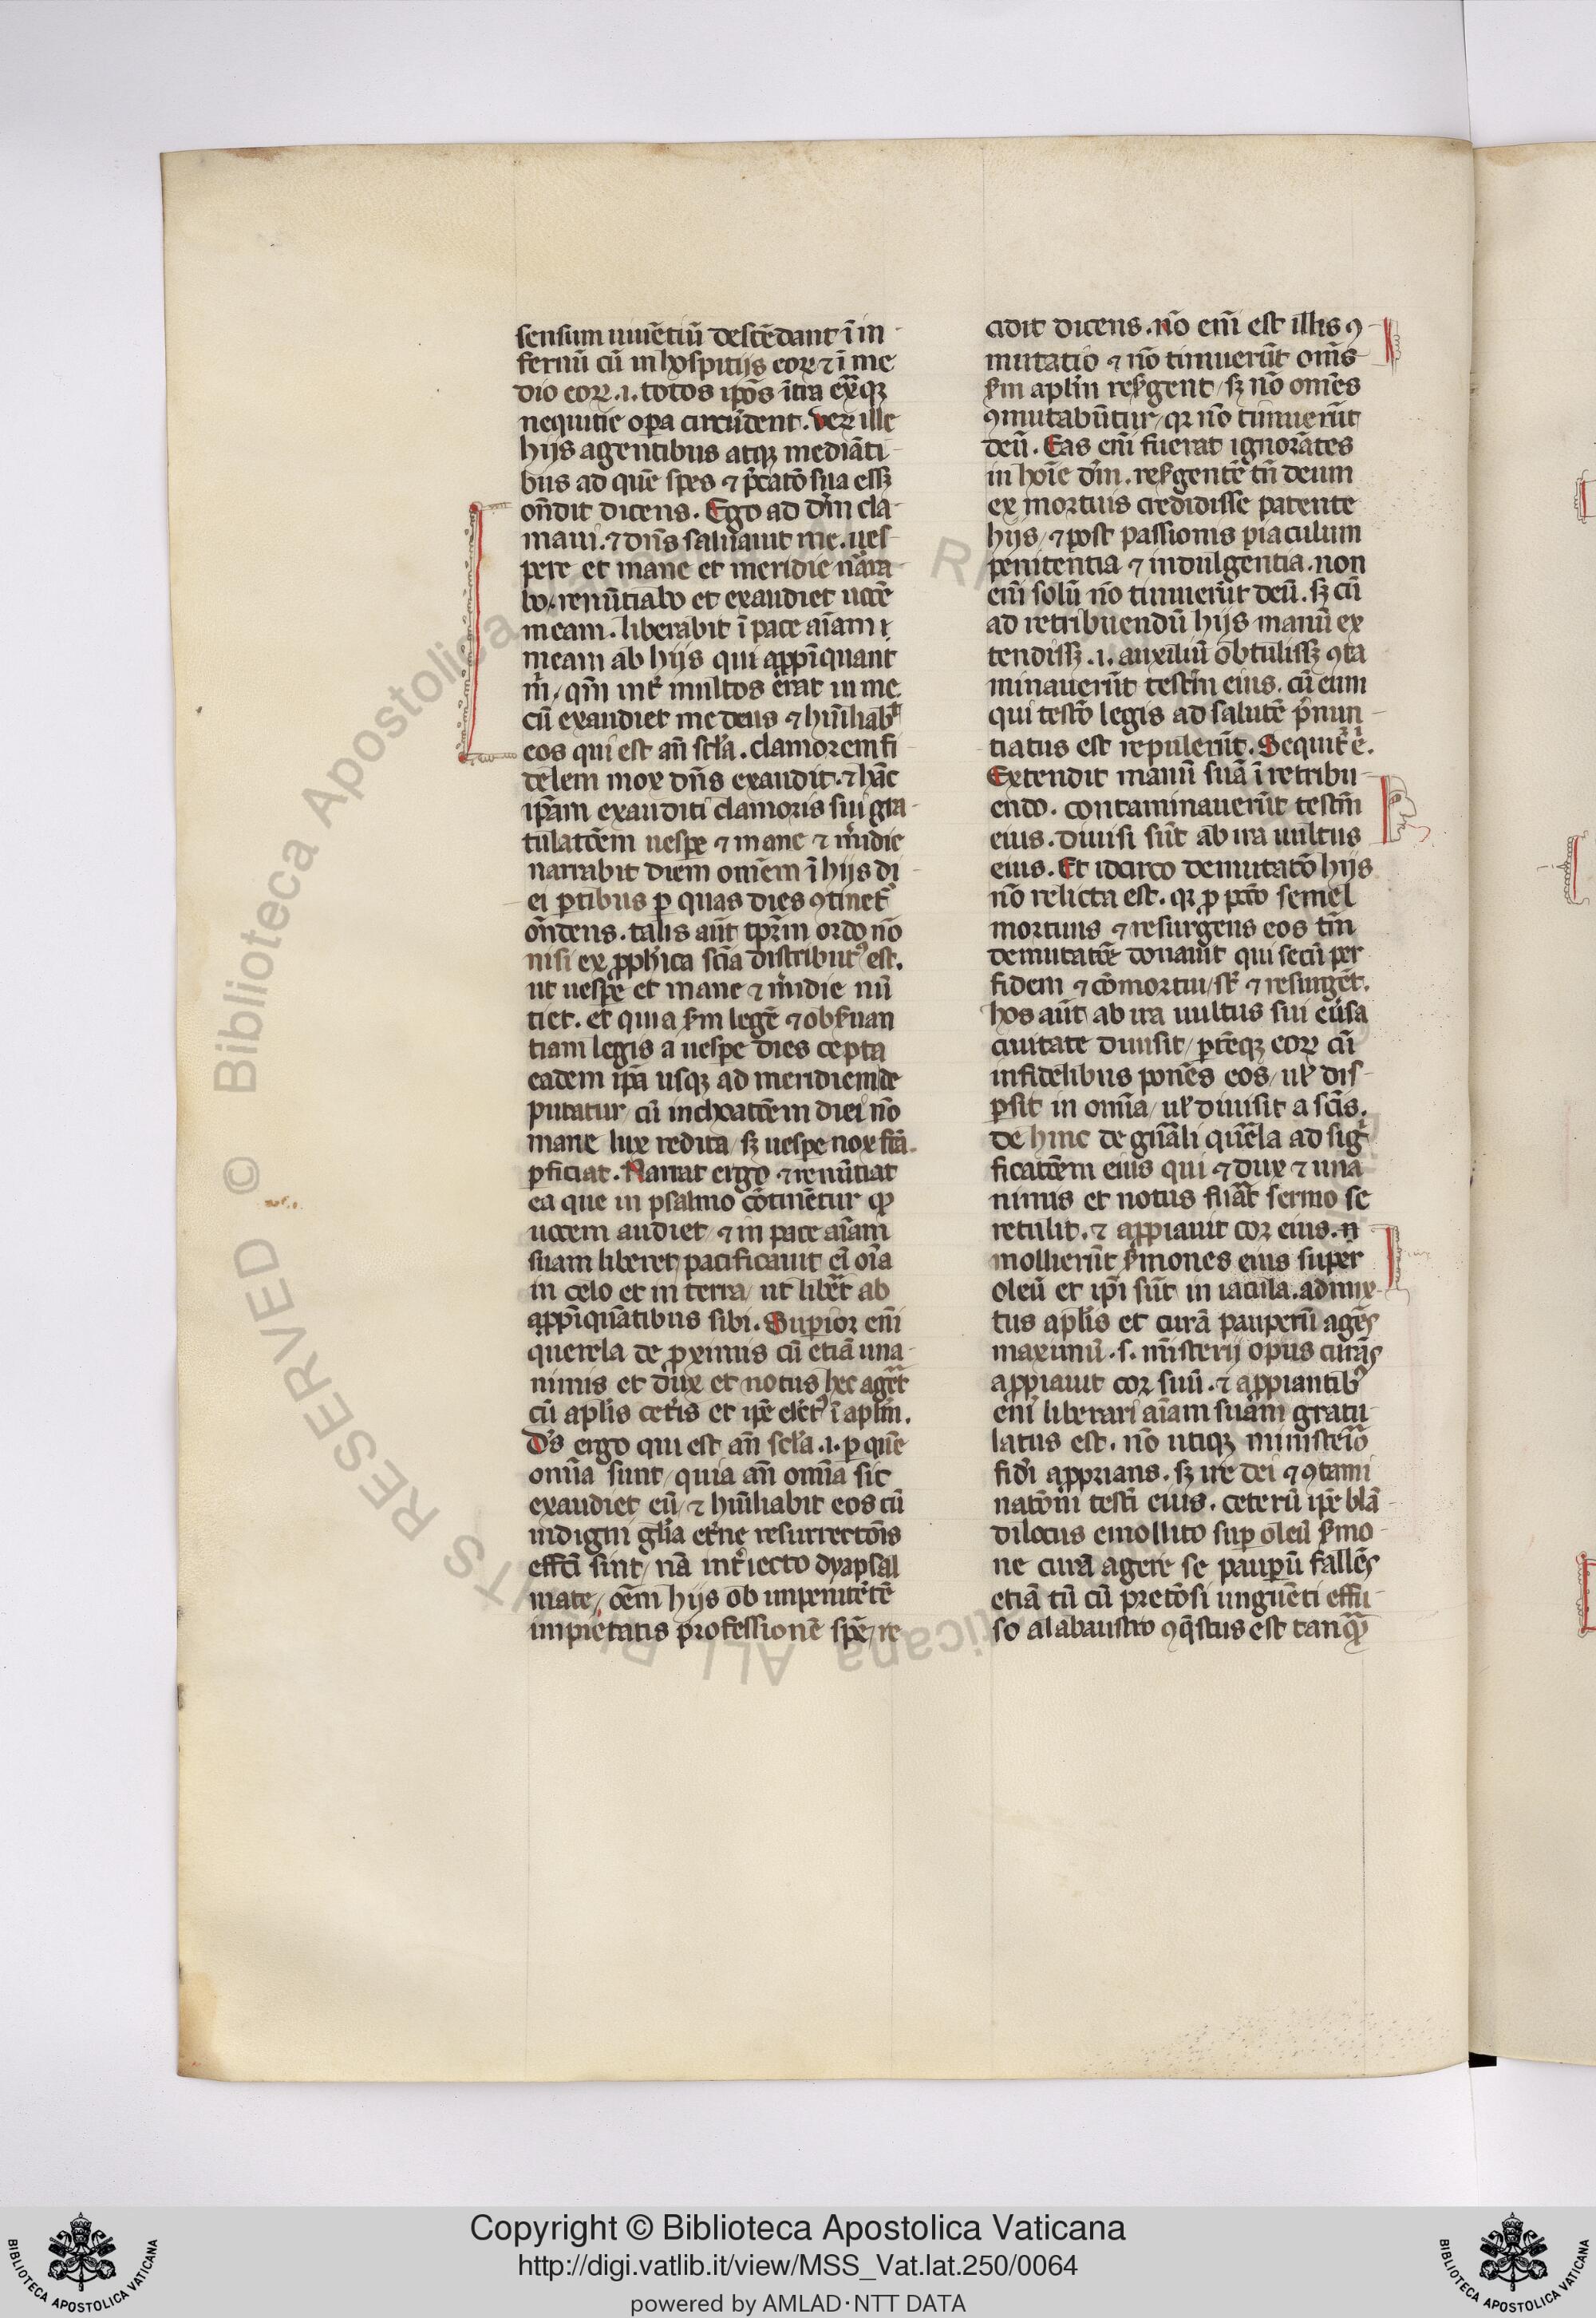 sensum uiuẽtiũ descẽdant ĩ in
fernũ cũ in hospitijs eoꝝ ⁊ ĩ me
dio eoꝝ .i. totos ip̃os ĩtra eꝝ̃q̨
nequitie oꝑa circũdent. Veꝝ ille
hijs agentibus atqꝫ mediãti
bus ad quẽ spes ⁊ p̃catõ sua essꝫ
oñdit dicens. Ego ad dñm cla
maui. ⁊ dñs saluauit me. ues
pere et mane et meridie nãrra
bo. renũtiabo et exaudiet uocẽ
meam. liberabit ĩ pace aĩam
meam ab hijs qui apꝓĩquant
m̃. qm̃ int̃ multos erat in me
cũ exaudiet me deus ⁊ hũiliabit
eos qui est añ scl̃a. clamorem fi
delem mox dñs exaudit. ⁊ hãc
ip̃am exauditi clamoris sui gra
tulatõem uespe ⁊ mane ⁊ m̃idie
narrabit diem omẽm ĩ hijs di
ei ꝑtibus ꝑ quas dies ꝯtinet᷑
oñdens. talis aũt tp̃rm ordo nõ
nisi ex ꝓph̾ica sciã distributꝰ est.
ut uespe et mane ⁊ m̃idie nũ
tiet. et quia sm̃ legẽ ⁊ obẜuan
tiam legis a uespe dies cepta
eadem ip̃a usqꝫ ad meridiem de
putatur / cũ inchoatõem diei nõ
mane lux reddita / sꝫ uespe nox fc̃a
ꝑficiat. Narrat ergo ⁊ renũtiat
ea que in psalmo cõtinẽtur ꝙ
uocem audiet / ⁊ in pace aĩam
suam liberet / pacificauit ei oĩa
in celo et in terra / ut libẽt ab
apꝓĩquãtibus sibi. Superior eñi
querela de ꝓximis cũ etiã una
nimis et dux et notus hec aget
cũ aplĩs cet̃is et ip̃e elc̃tꝰ ĩ aplm̃.
D̃s ergo qui est añ scl̃a .i. ꝑ quẽ
omĩa sunt / quia añ omĩa sit
exaudiet eũ / ⁊ hũiliabit eos cũ
indigni gl̃ia et̃ne resurrectõis
effc̃i sint / nã int̃iecto dyapsal
mate / oẽm hijs ob impenitẽtẽ
impietatis professionẽ spẽ / re
cidit dicens. nõ eñi est illis ꝯ
mutatio ⁊ nõ timuerũt om̃s
sm̃ aplm̃ resgent / sꝫ nõ omẽs
ꝯmutabũtur / qꝛ nõ timuerũt
deũ. Eas eñi fuerat ignorãtes
in hoĩe dm̃. resgentẽ tñ deum
ex mortuis credidisse patente
hijs / ⁊ post passionis piaculum
penitentia ⁊ indulgentia. non
eñi solũ nõ timuerũt deũ. sꝫ cũ
ad retribuendũ hijs manũ ex
tendissꝫ .i. auxiliũ obtulissꝫ ꝯta
minauerũt testm̃ eius. cũ eum
qui testõ legis ad salutẽ p̃nun
tiatus est repulerũt. Sequit᷑ .e.
Extendit manũ suã ĩ retribu
endo. contaminauerũt testm̃
eius. diuisi sũt ab ira uultus
eius. Et idcirco demutatõ hijs
nõ relicta est. qꝛ ꝓ pctõ semel
mortuus ⁊ resurgens eos tm̃
demutatõe donauit qui secũ per
fidem ⁊ cõmortui / st̃ ⁊ resurgẽt.
hos aũt ab ira uultus sui eũsa
ciuitate diuisit / ꝑtẽqꝫ eoꝝ cũ
infidelibus ponẽs eos / uł dis
ꝑsit in omĩa / uł diuisit a scĩs.
de hinc de gñali querela ad sigᷓ
ficatõem eius qui ⁊ dux ⁊ una
nimis et notus fuat sermo se
retulit. ⁊ apꝓiauit cor eius.
mollierũt ẜmones eius super
oleũ et ip̃i sũt in iacula. admix
tus aplĩs et curã pauperũ agẽs
maximũ .s. mĩsterij opus curãs
apꝓiauit cor suũ. ⁊ apꝓiantibꝰ
eñi liberari aĩam suam gratu
latus est. nõ utiqꝫ ministerio
fidei apꝓians. sꝫ ire dei ⁊ ꝯtami
natõni testi eius. ceterũ ip̃e blã
dilocus emollito sup oleũ ẜmo
ne curã agere se paupũ fallẽs
etiã tũ cũ pretõsi unguẽti effu
so alabaustro ꝯq̃stus est tanꝙ̃
Copyright © Biblioteca Apostolica Vaticana
http://digi.vatlib.it/view/MSS_Vat.lat.250/0064
powered by AMLAD·NTT DATA